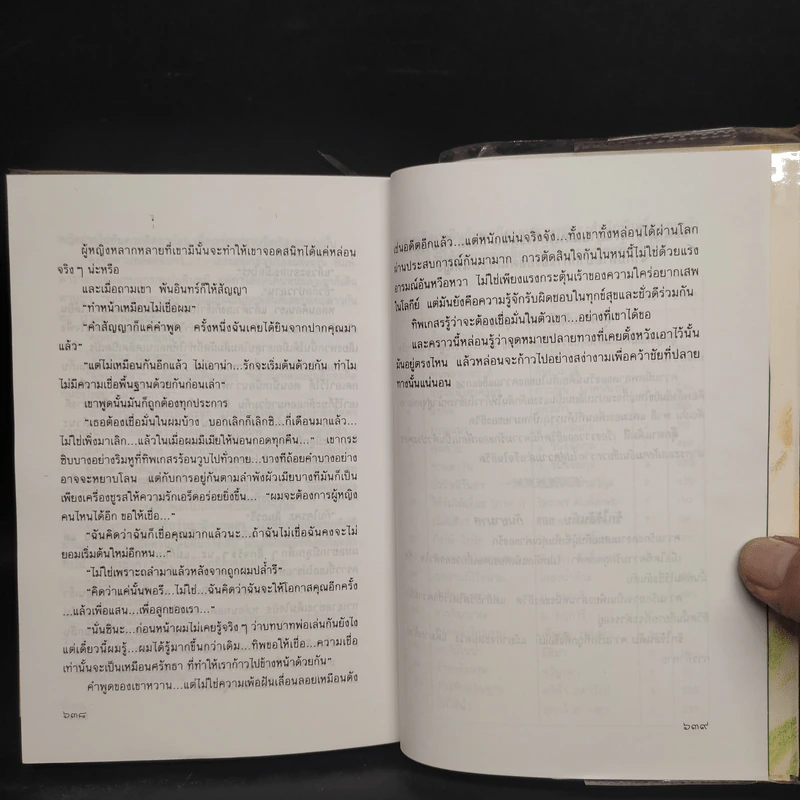 ผู้หญิงหลากหลายที่เขามีนั้นจะทำให้เขาจอดสนิทได้แค่หล่อน
จริง ๆ น่ะหรือ
และเมื่อถามเขา พันอินทร์ก็ให้สัญญา
“ทำหน้าเหมือนไม่เชื่อผม”
“คำสัญญาก็แค่คำพูด ครั้งหนึ่งฉันเคยได้ยินจากปากคุณมา
แล้ว”
“แต่ไม่เหมือนกันอีกแล้ว ไม่เอาน่า...รักจะเริ่มต้นด้วยกัน ทำไม
ไม่มีความเชื่อพื้นฐานด้วยกันก่อนเล่า”
เขาพูดนั้นมันก็ถูกต้องทุกประการ
“เธอต้องเชื่อมั่นในผมบ้าง บอกเลิกก็เลิกซิ...กี่เดือนมาแล้ว...
ไม่ใช่เพิ่งมาเลิก...แล้วในเมื่อผมมีเมียให้นอนกอดทุกคืน...” เขากระ
ซิบบางอย่างริมหูที่ทิพเกสรร้อนวูบไปทั่วกาย...บางทีถ้อยคำบางอย่าง
อาจจะหยาบโลน แต่กับการอยู่กันตามลำพังผัวเมียบางทีมันก็เป็น
เพียงเครื่องชูรสให้ความรักเอร็ดอร่อยยิ่งขึ้น... “ผมจะต้องการผู้หญิง
คนไหนได้อีก ขอให้เชื่อ...”
“ฉันคิดว่าฉันก็เชื่อคุณมากแล้วนะ...ถ้าฉันไม่เชื่อฉันคงจะไม่
ยอมเริ่มต้นใหม่อีกหน...”
“ไม่ใช่เพราะถลำมาแล้วหลังจากถูกผมปล้ำรึ”
“คิดว่าแค่นั้นพอรึ...ไม่ใช่...ฉันคิดว่าฉันจะให้โอกาสคุณอีกครั้ง
...แล้วเพื่อแสน...เพื่อลูกของเรา...”
“นั่นซินะ...ก่อนหน้าผมไม่เคยรู้จริง ๆ ว่าบทบาทพ่อเล่นกันยังไง
แต่เดี๋ยวนี้ผมรู้...ผมได้รู้มากขึ้นกว่าเดิม...ทิพขอให้เชื่อ...ความเชื่อ
เท่านั้นจะเป็นเหมือนศรัทธา ที่ทำให้เราก้าวไปข้างหน้าด้วยกัน”
คำพูดของเขาหวาน...แต่ไม่ใช่ความเพ้อฝันเลื่อนลอยเหมือนดัง
๖๓๘
เช่นอดีตอีกแล้ว...แต่หนักแน่นจริงจัง...ทั้งเขาทั้งหล่อนได้ผ่านโลก
ผ่านประสบการณ์กันมามาก การตัดสินใจกันในหนนี้ไม่ใช่ด้วยแรง
อารมณ์อันหวือหวา ไม่ใช่เพียงแรงกระตุ้นเร้าของความใคร่อยากเสพ
ในโลกีย์ แต่มันยังคือความรู้จักรับผิดชอบในทุกข์สุขและชั่วดีร่วมกัน
ทิพเกสรรู้ว่าจะต้องเชื่อมั่นในตัวเขา...อย่างที่เขาได้ขอ
และคราวนี้หล่อนรู้ว่าจุดหมายปลายทางที่เคยตั้งหวังเอาไว้นั้น
มันอยู่ตรงไหน แล้วหล่อนจะก้าวไปอย่างสง่างามเพื่อคว้าชัยที่ปลาย
ทางนั้นแน่นอน
๖๓๙